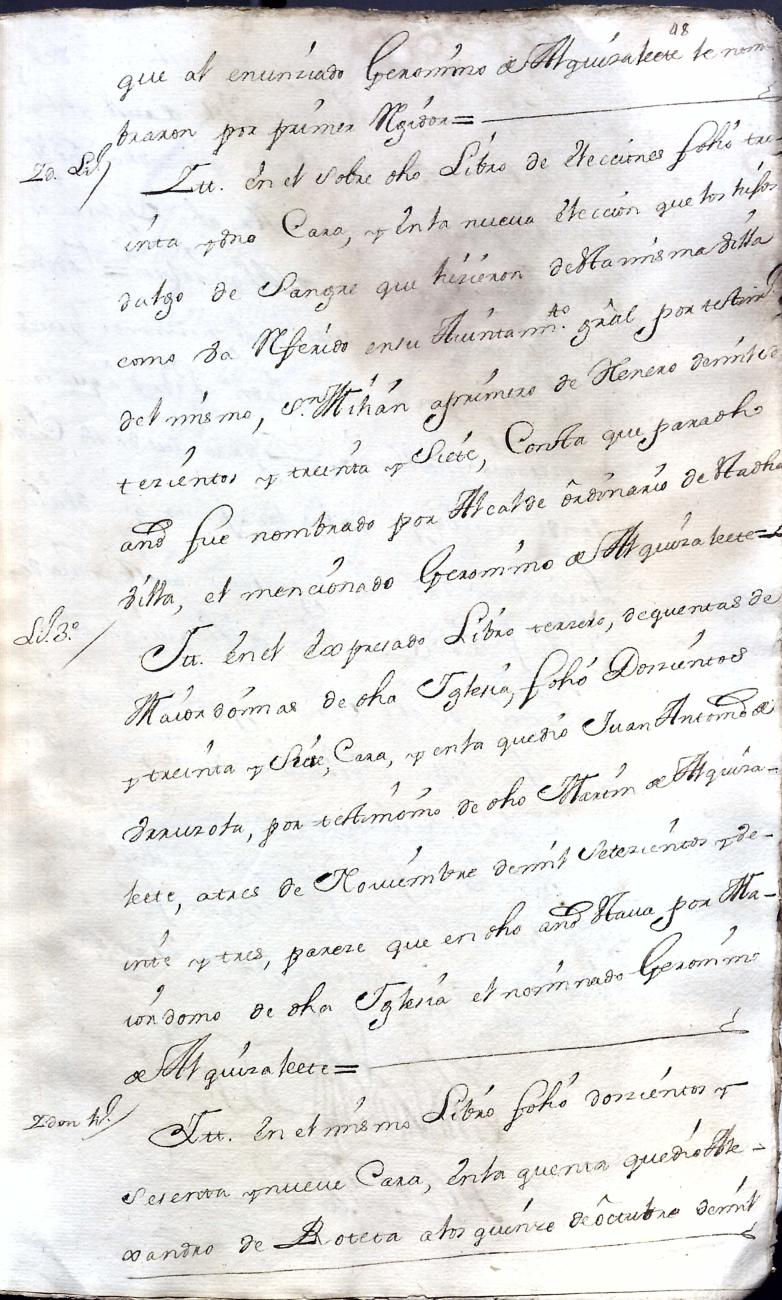 48
que al enunziado Geronimo de Alquizaleete le nom
braron por primer Regidor=
Ytt. en el sobre dho Libro de elecciones folio tre
inta y dno Cara, y en la nueva eleccion que los hijos
dalgo de Sangre que hizieron de esta misma villa
como va Referido en su Aiuntamto. gral por testim
del mismo, Sn. Millan a primero de Henero de mil se
tezientos y treinta y Siete, Consta que para dho
año fue nombrado por Alcalde ordinario de esta dha
villa, el mencionado Geronimo de Alquizaleete=
Lib. 3.o
Ytt. en el expresado Libro terzero, de quentas de
Maiordomias de dha Yglesia, folio Dozientos
y treinta y Siete, Cara, y en la que dio Juan Antonio de
Arruzola, por testimonio de dho Martin de Alquiza-
leete, a tres de Noviembre de mil setezientos y ve-
inte y tres, pareze que en dho año estava por Ma-
iordomo de dha Yglesia el nominado Geronimo
de Alquizaleete=
Ytt. en el mismo Libro folio dozientos y
sesenta y nueve Cara, en la quenta que dio Ale-
xandro de Roteta a los quinze de octubre de mil